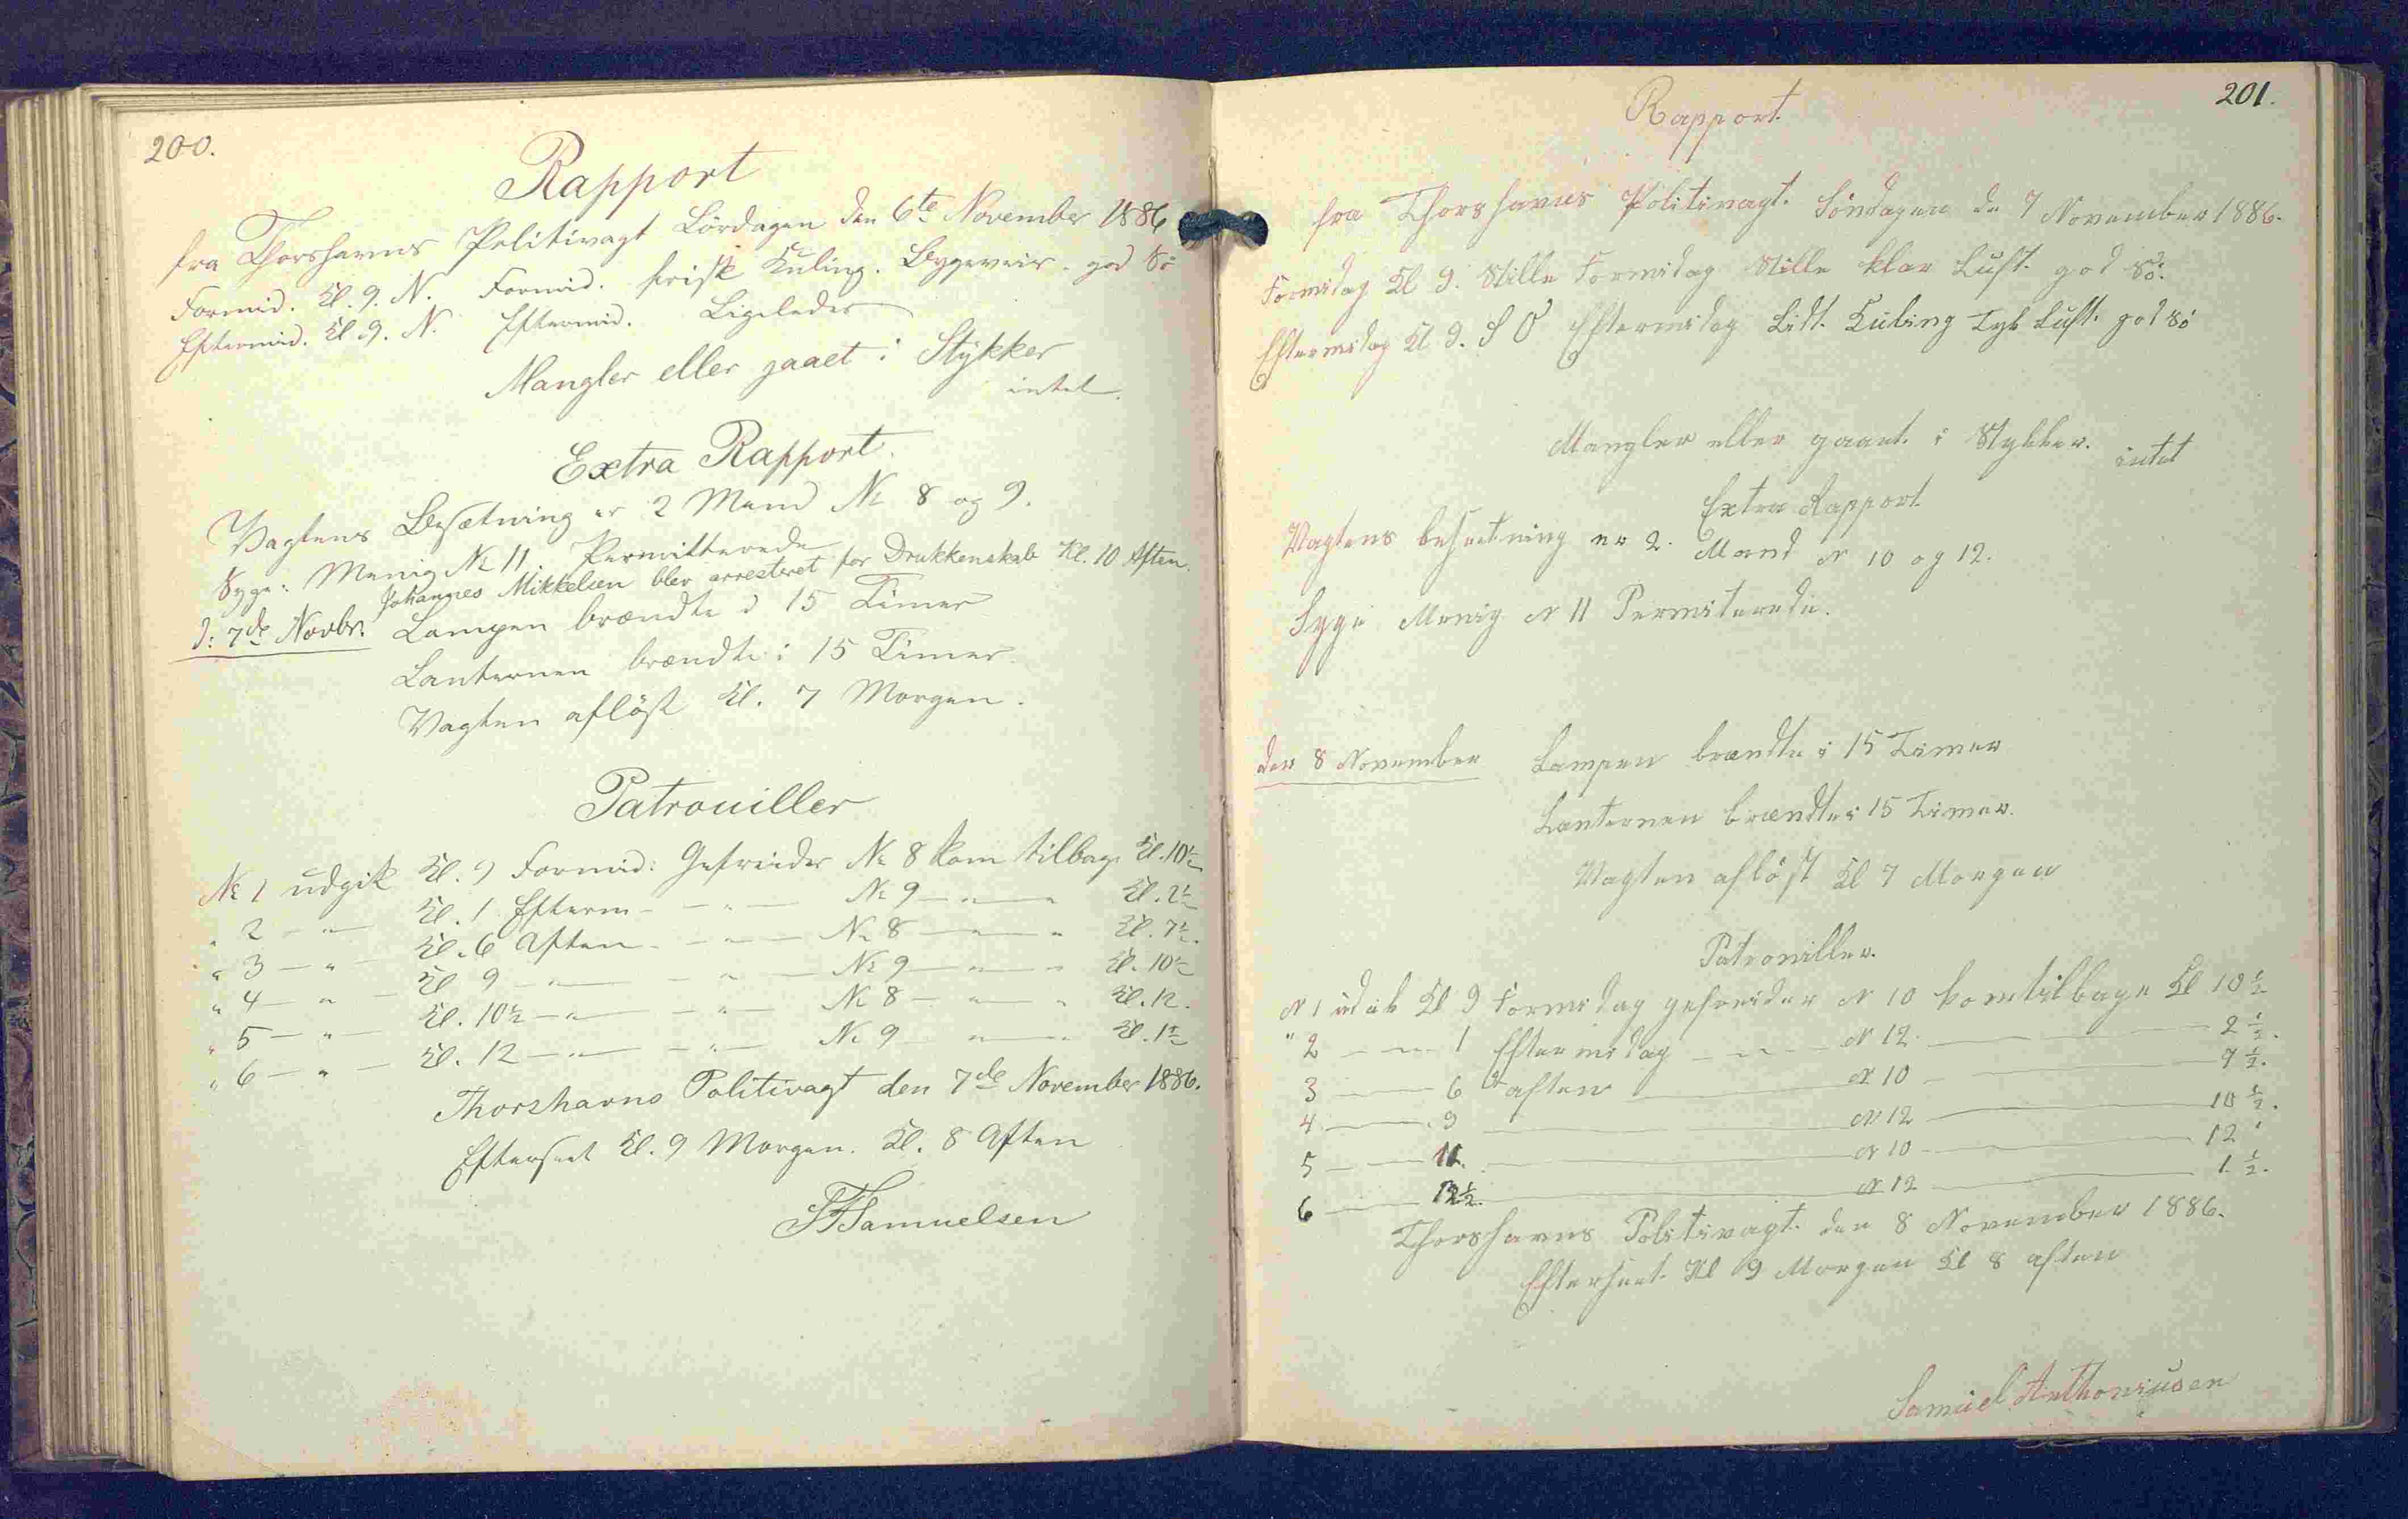 200.
Rapport
fra Thorshavns Politivagt Lördagen den 6te November 1886
Formid. Kl. 9. N. Formid. frisk Kuling. Bygeveir. god Sö
Eftermid. Kl 9. N. Eftermid. Ligeledes
Mangler eller gaaet i Stykker
intet.
Extra Rapport.
Vagtens Besætning er 2 Mand No 8 og 9.
Syge: Menig No 11 Permitterede
Johannes Mikkelsen blev arresteret for Drukkenskab Kl. 10 Aften.
d: 7de Novbr. Lampen brændte i 15 Timer
Lanternen brændte i 15 Timer
Vagten aflöst Kl. 7 Morgen.
Patrouiller
No 1 udgik Kl. 9 Formid: Gefreider No 8 kom tilbage Kl. 10½
" 2 — " — Kl. 1 Efterm — " — No 9 — " — " Kl. 2½
" 3 — " — Kl. 6 Aften — " — No 8 — " — " Kl. 7½.
" 4 — " — Kl 9 — " — — " — No 9 — " — " Kl. 10½
" 5 — " — Kl. 10½ — " — — " — No 8 — " — " Kl. 12.
" 6 — " — Kl. 12 — " — — " — No 9 — " — Kl. 1½
Thorshavns Politivagt den 7de November 1886.
Efterseet Kl. 9 Morgen. Kl. 8 Aften
Samuelsen
201.
Rapport.
fra Thorshavns Politivagt. Söndagen de 7 November 1886.
Formidag Kl 9. Stille Formidag Stille klar Luft. god Sö.
Eftermidag Kl 9. S O Eftermidag Lidt. Kuling Tyk Luft. god Sö
Mangler eller gaaet. i Stykker. intet
Extra Rapport.
Vagtens besætning er 2. Mand N 10 og 12.
Syge Menig N 11 Permiterede.
den 8 November Lampen brændte i 15 Timer
Lanternen brændte i 15 Timer.
Vagten aflöst Kl 7 Morgen
Patrouiller.
N 1 udik Kl 9 Formidag gefreider N 10 kom tilbage Kl 10½
" 2 — " — 1 Eftermidag — " — N 12. — 2½.
3 — 6 aften — N 10 — 7½.
4 — 9 — N 12 — 10½.
5 — 11. — N 10 — 12
6 — 12½. — N 12 — 1½.
Thorshavns Politivagt. den 8 November 1886.
Efterseet. Kl 9 Morgen Kl 8 aften
Samuel Anthoniusen